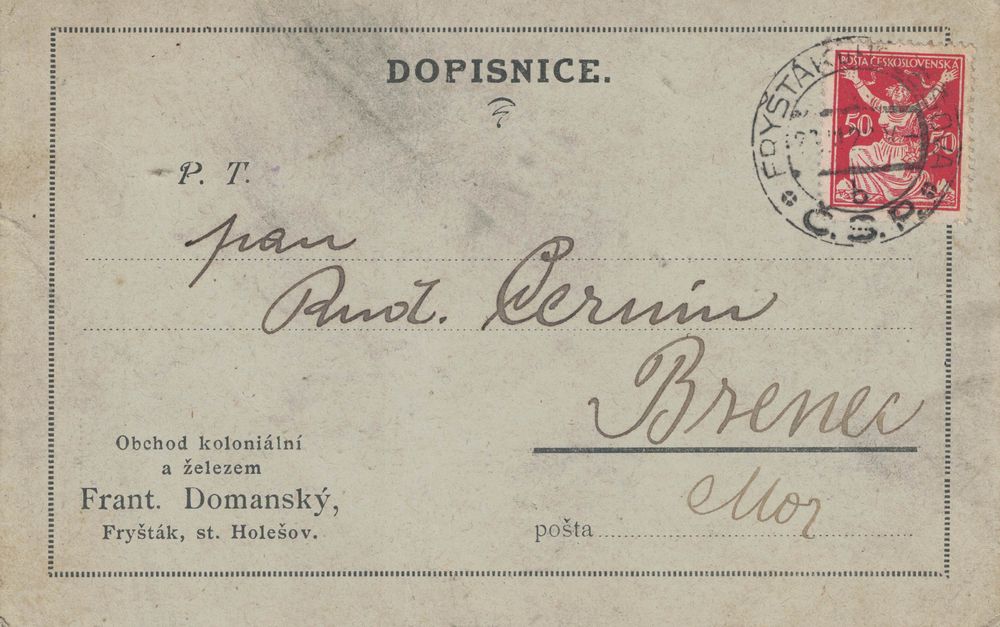 DOPISNICE.
POŠTA ČESKOSLOVENSKÁ
50 50
FRYŠTÁK
Č.S.P.
P. T.
pan
Rud. Černín
Brenec
Mor
Obchod koloniální
a železem
Frant. Domanský,
Fryšták, st. Holešov.
pošta